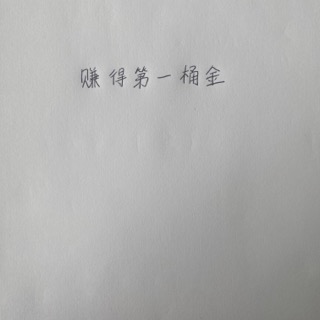 赚得第一桶金